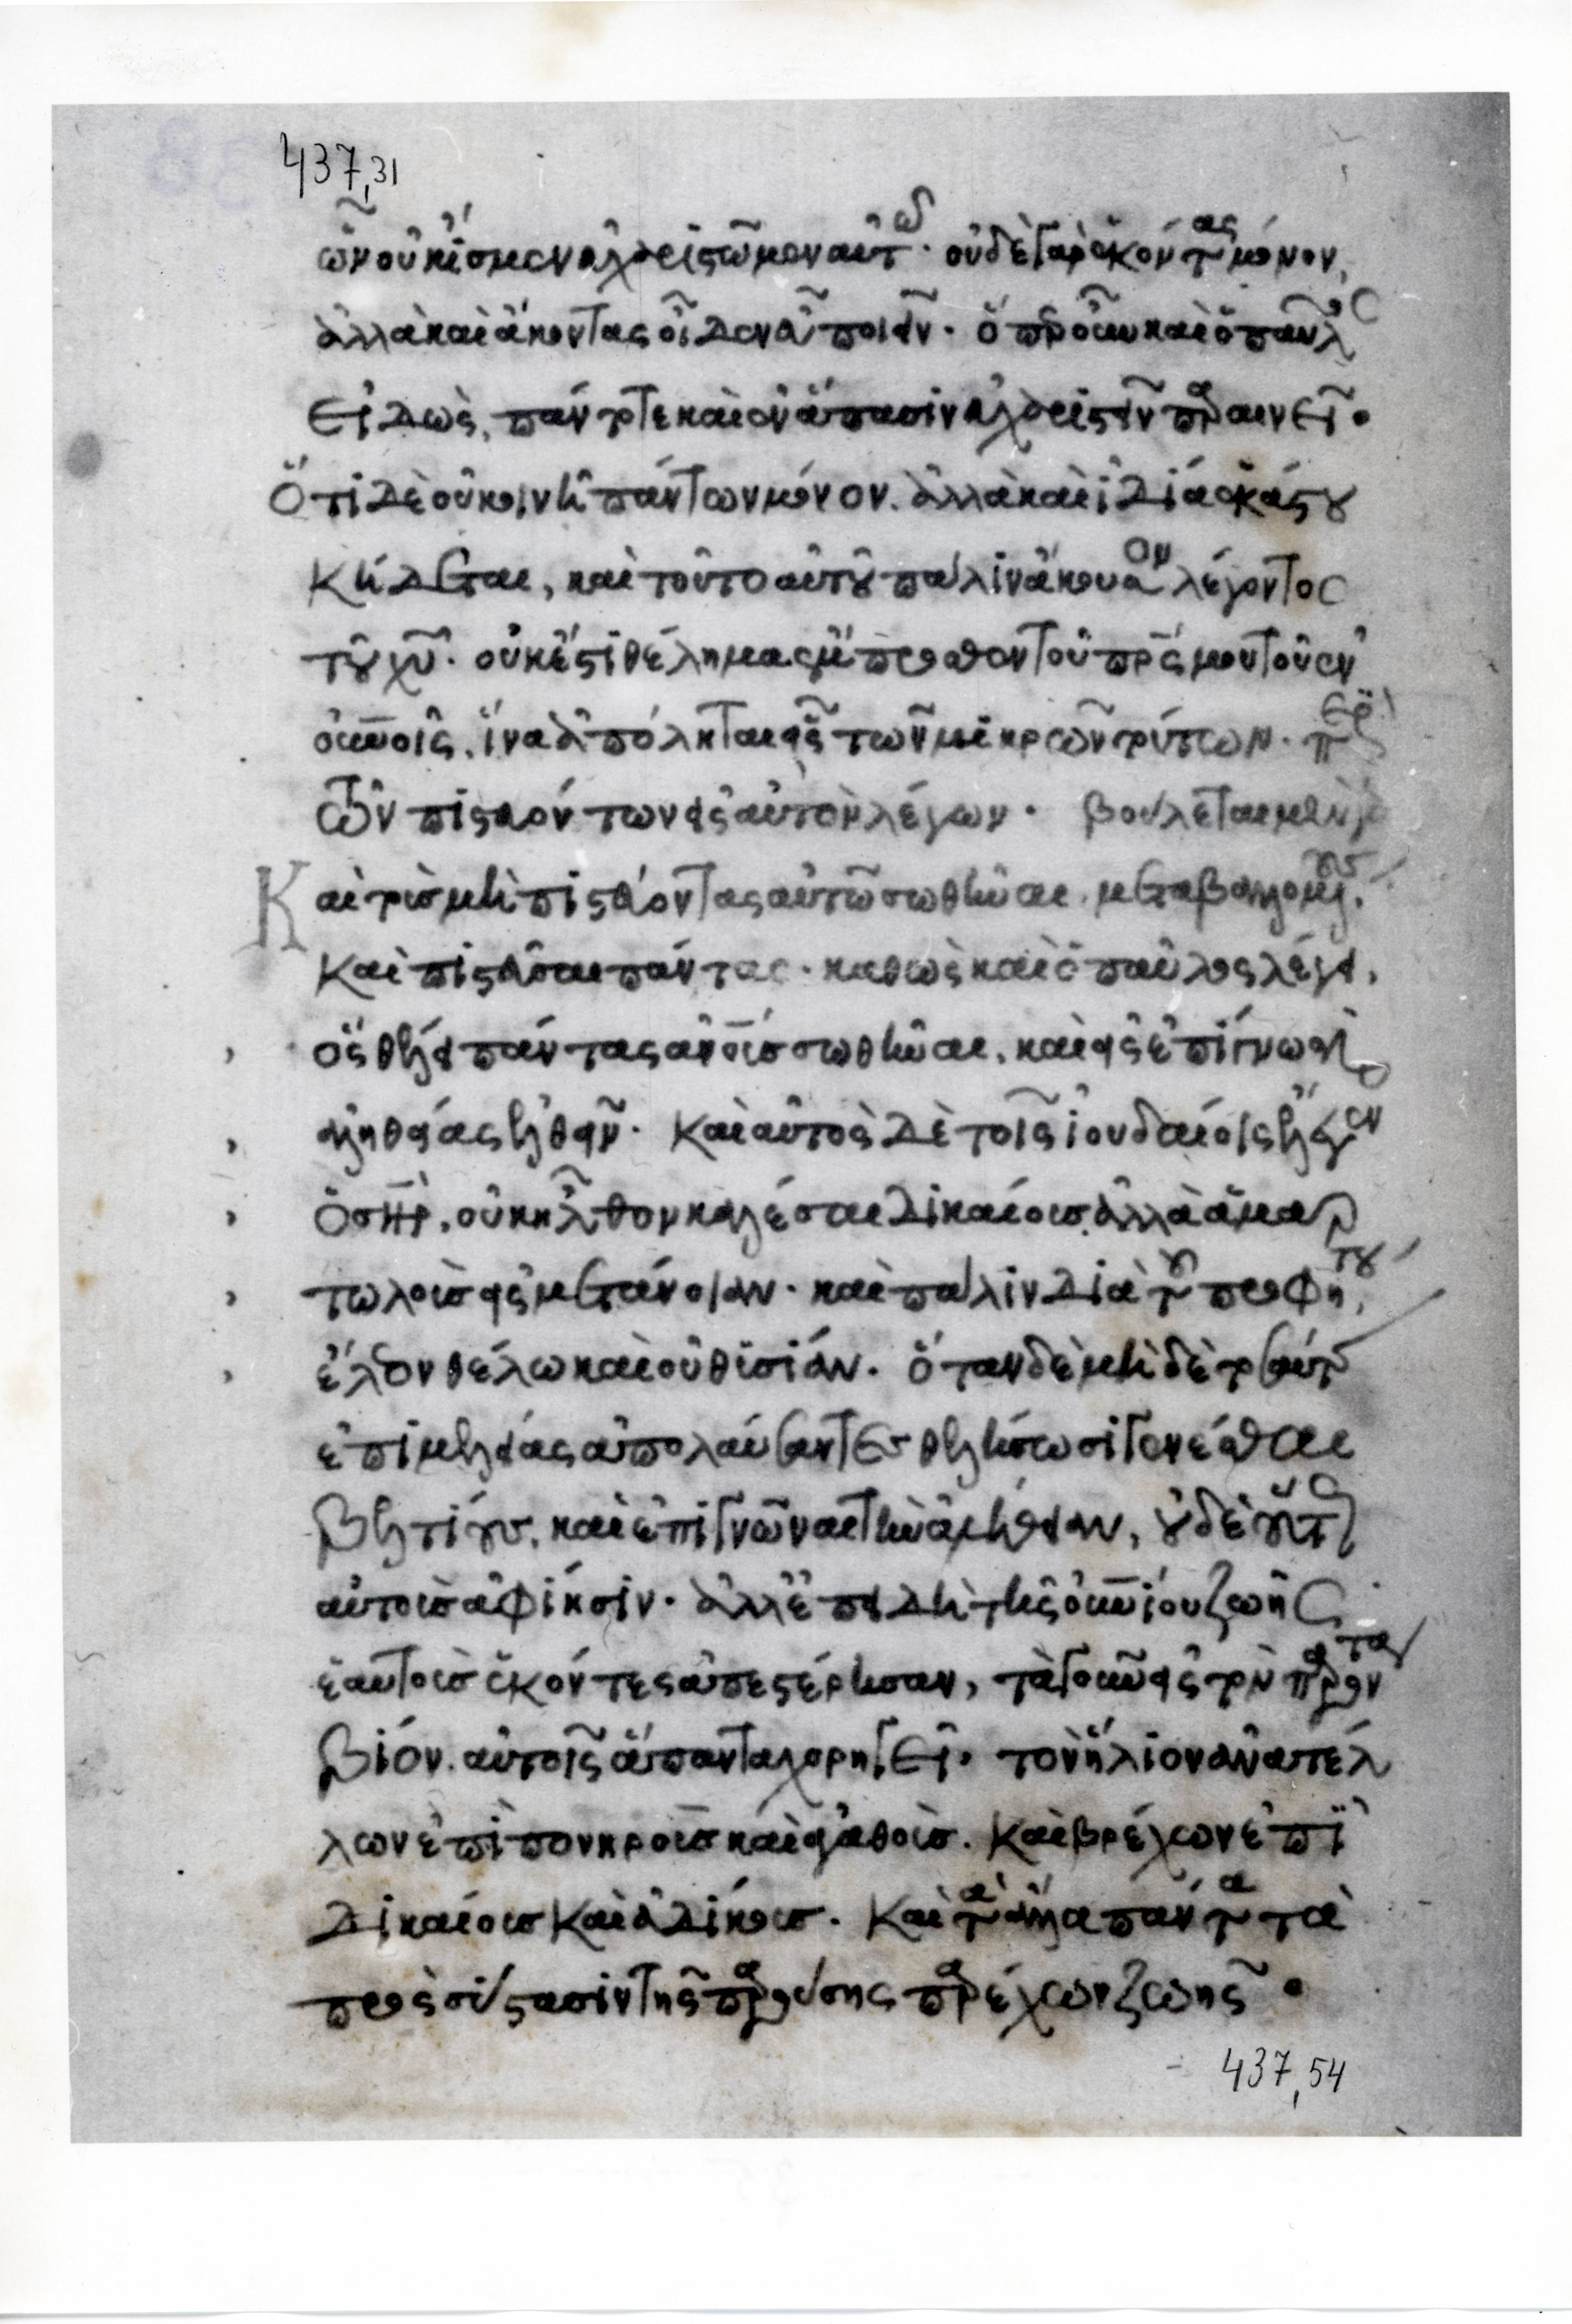 437,31
ὧν οὐκ ἐσμὲν ἀχάριστοι μὲν αὐτῷ. οὐδὲ γὰρ ἑκόντας μόνον,
ἀλλὰ καὶ ἄκοντας οἶδεν εὖ ποιεῖν. ὅπερ οὖν καὶ ὁ παῦλος
εἰδὼς, πάντοτε καὶ ἐν ἅπασιν εὐχαριστεῖν παραινεῖ.
Ὅτι δὲ οὐ κοινῇ πάντων μόνον. ἀλλὰ καὶ ἰδίᾳ ἑκάστου
κήδεται, καὶ τοῦτο αὐτοῦ πάλιν ἄκουσον λέγοντος
τοῦ χυ. οὐκ ἔστι θέλημα ἔμπροσθεν τοῦ πρς μου τοῦ ἐν
οὐνοις, ἵνα ἀπόληται εἷς τῶν μικρῶν τούτων. περὶ
τῶν πιστευόντων εἰς αὐτὸν λέγων. βούλεται μὲν γὰρ
Καὶ τοὺς μὴ πιστεύοντας αὐτῷ σωθῆναι. μεταβαλλομένους.
καὶ πιστεῦσαι πάντας. καθὼς καὶ ὁ παῦλος λέγει.
ὃς θέλει πάντας ανους σωθῆναι, καὶ εἰς ἐπίγνωσιν
ἀληθείας ἐλθεῖν. καὶ αὐτὸς δὲ τοῖς ἰουδαίοις ἔλεγεν
ὁ σηρ, οὐκ ἦλθον καλέσαι δικαίους ἀλλὰ ἁμαρ
τωλοὺς εἰς μετάνοιαν. καὶ πάλιν διὰ τοῦ προφήτου,
ἔλεον θέλω καὶ οὐ θυσίαν. ὅταν δὲ μηδὲ τοσαύτης
ἐπιμελείας ἀπολαύσαντες θελήσωσι γενέσθαι
βελτίους, καὶ ἐπιγνῶναι τὴν ἀλήθειαν, οὐδὲ οὕτως
αὐτοὺς ἀφίησιν. ἀλλ' ἐπειδὴ τῆς οὐνίου ζωῆς
ἑαυτοὺς ἑκόντες ἀπεστέρησαν, τὰ γοῦν εἰς τὸν παρόντα
βίον. αὐτοῖς ἅπαντα χορηγεῖ. τὸν ἥλιον ἀνατέλ
λων ἐπὶ πονηροὺς καὶ ἀγαθοὺς. καὶ βρέχων ἐπὶ
δικαίους καὶ ἀδίκους. καὶ τὰ ἄλλα πάντα τὰ
πρὸς σύστασιν τῆς παρούσης παρέχων ζωῆς.
437,54